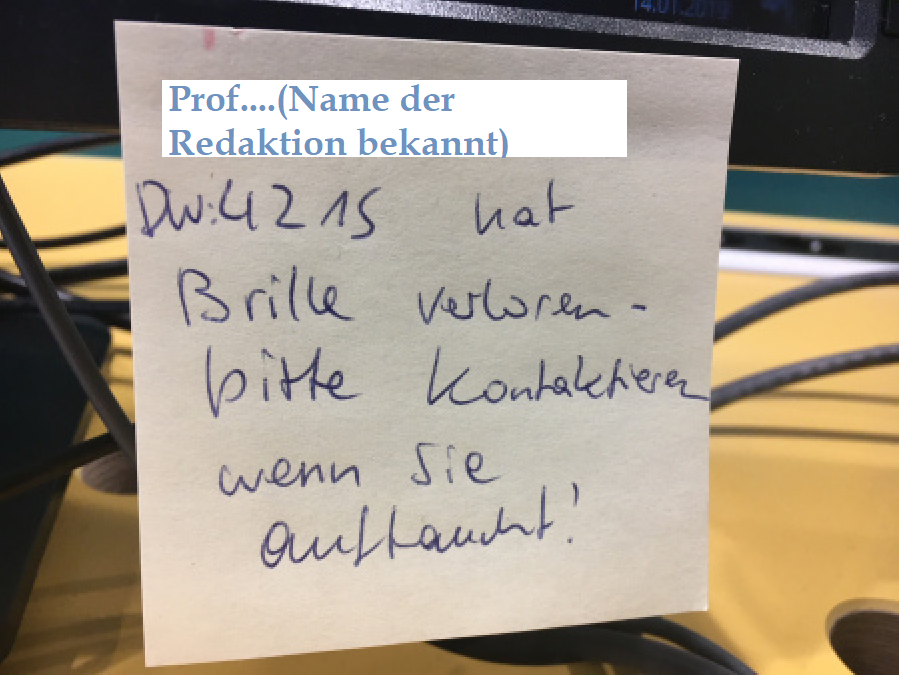 14.01.2019
Prof....(Name der
Redaktion bekannt)
DW:4215 hat
Brille verloren -
bitte kontaktieren
wenn sie
auftaucht!